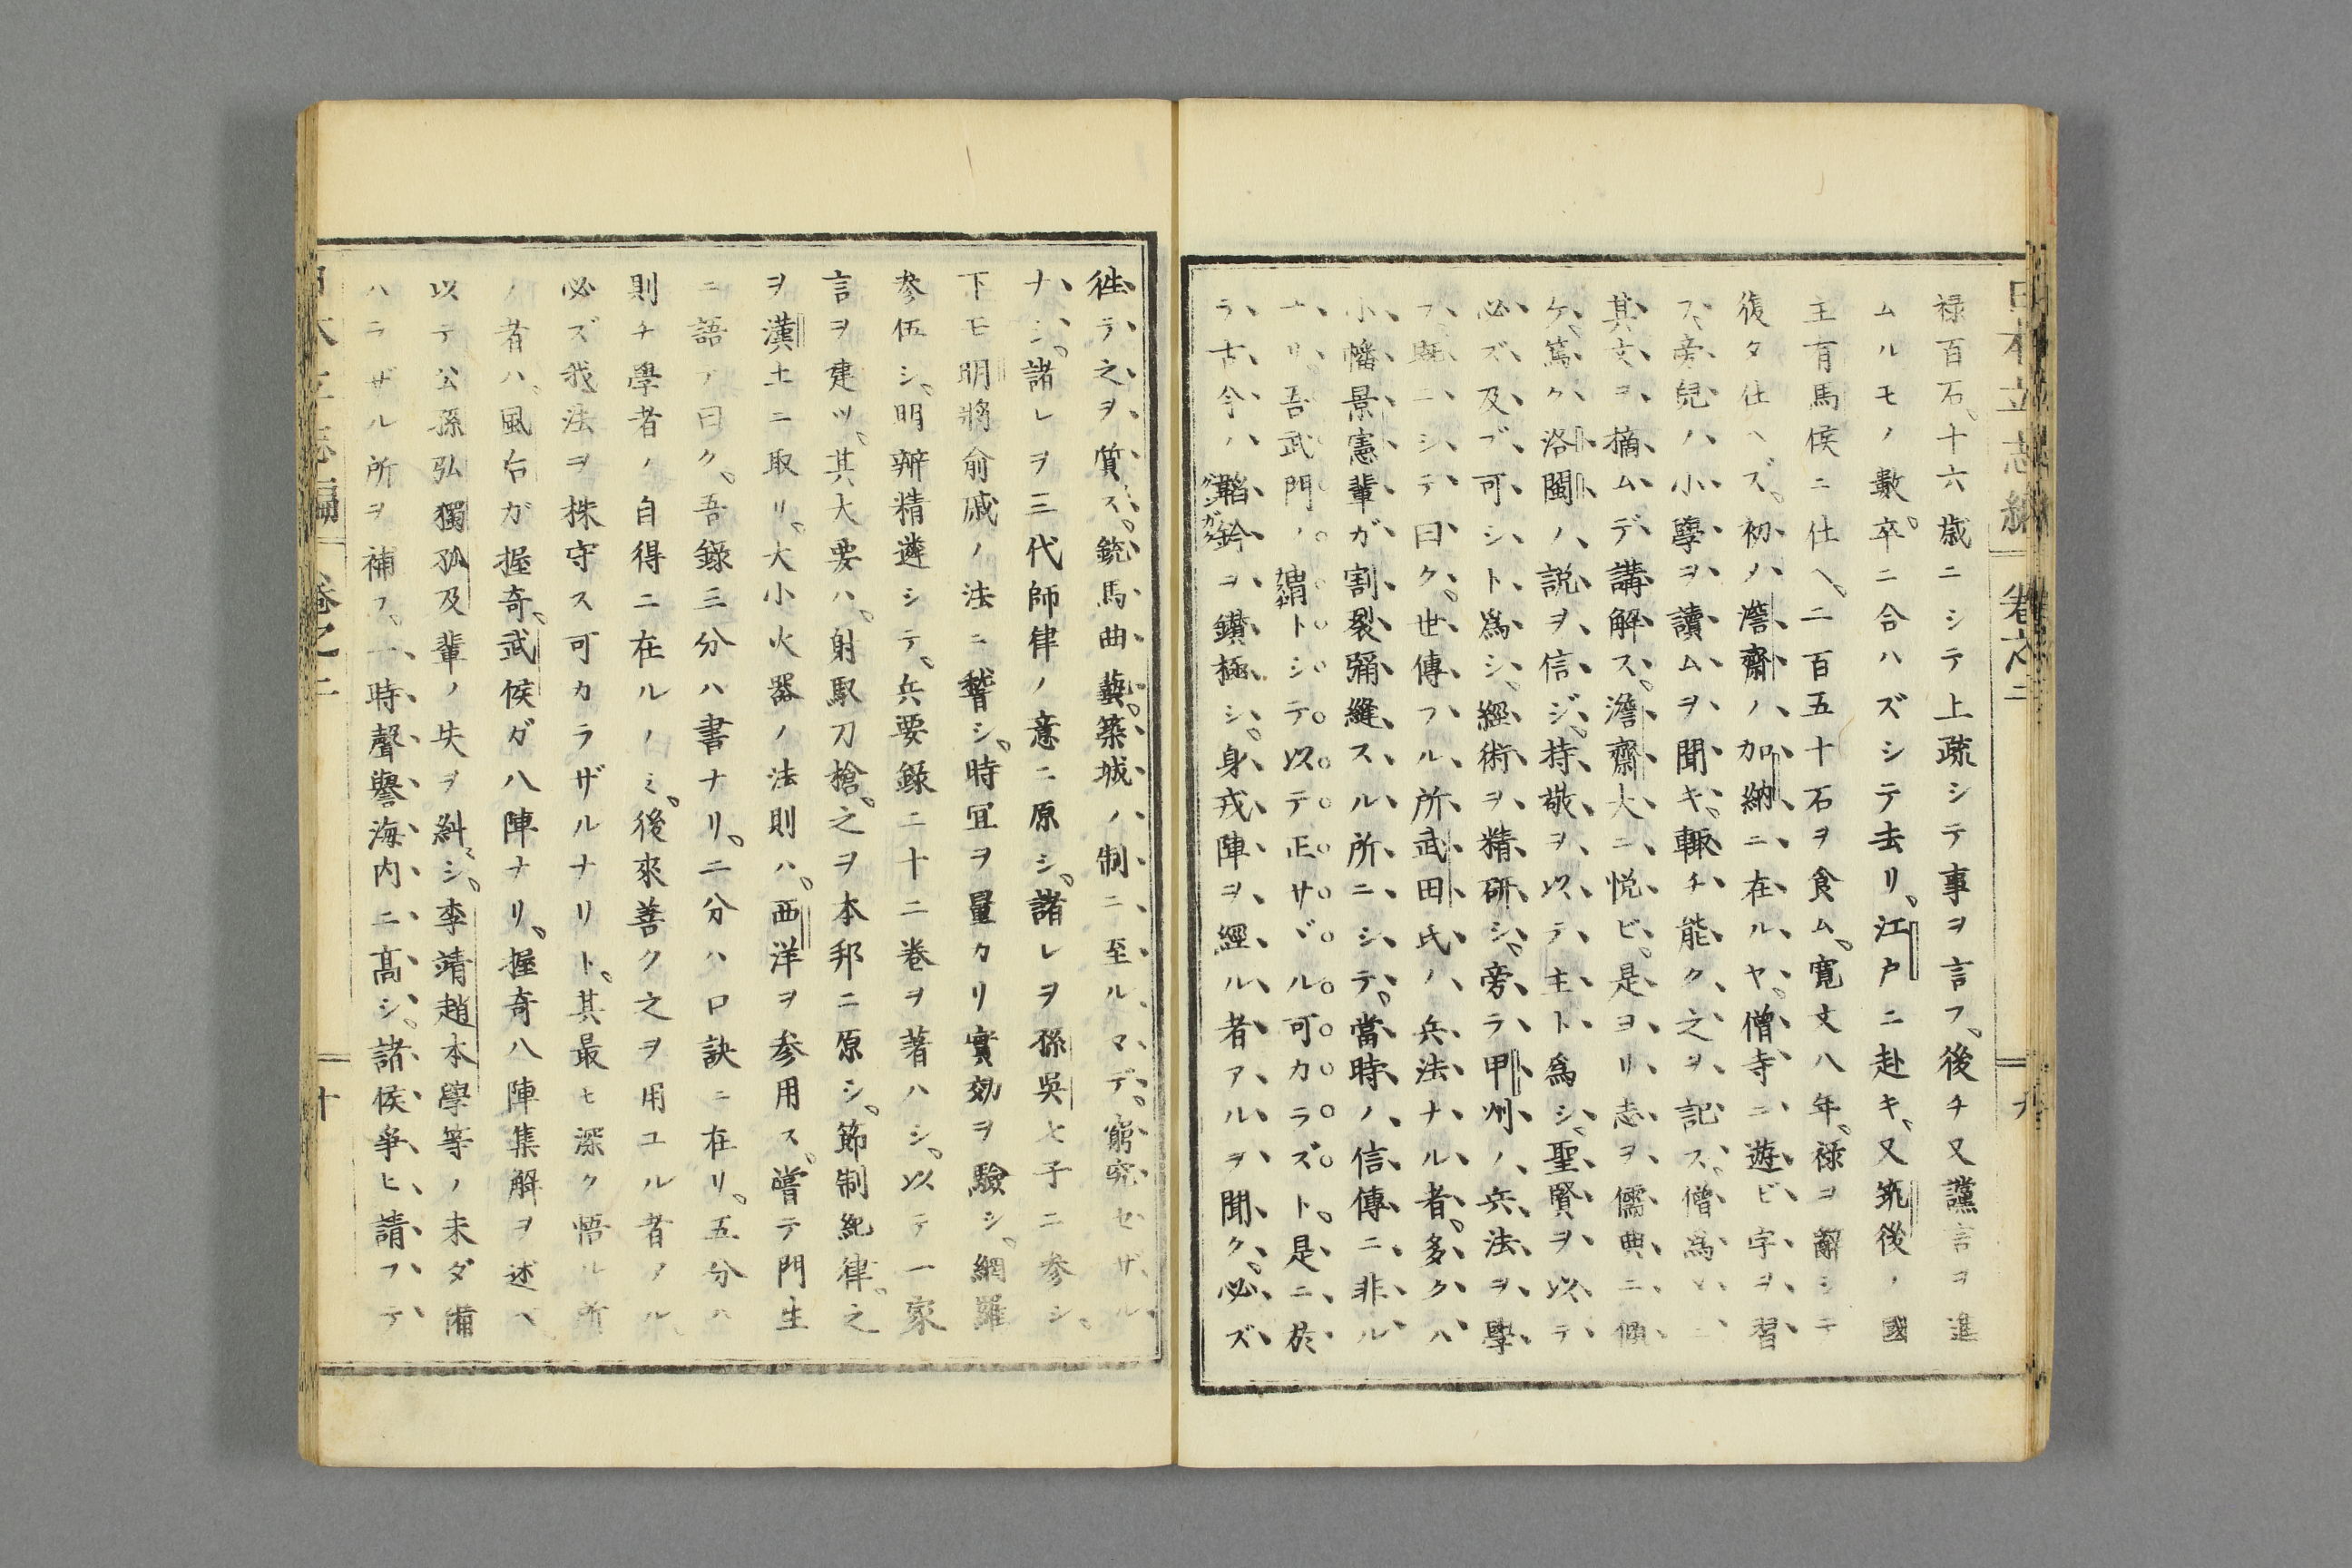 日本立志編 卷之二 九
禄百石、十六歳ニシテ上疏シテ事ヲ言フ、後チ又讜言ヲ進
ムルモノ數、卒ニ合ハズシテ去リ、江戸ニ赴キ、又筑後ノ國
主有馬侯ニ仕ヘ、二百五十石ヲ食ム、寛文八年、禄ヲ辭シテ
復タ仕ヘズ、初メ澹齋ノ加納ニ在ルヤ、僧寺ニ遊ビ字ヲ習
フ、旁兒ノ小學ヲ讀ムヲ聞キ、輙チ能ク之ヲ記ス、僧爲ニ
其文ヲ摘ムデ講解ス、澹齋大ニ悦ビ、是ヨリ志ヲ儒典ニ傾
ケ、篤ク洛閩ノ説ヲ信ジ、持敬ヲ以テ主ト爲シ、聖賢ヲ以テ
必ズ及ブ可シト爲シ、經術ヲ精研シ、旁ラ甲州ノ兵法ヲ學
フ、既ニシテ曰ク、世傳フル所武田氏ノ兵法ナル者、多クハ
小幡景憲輩ガ割裂彌縫スル所ニシテ、當時ノ信傳ニ非ル
ナリ、吾武門ノ謂トシテ以テ正サヾル可カラズト、是ニ於
ラ古今ノ韜鈐ヲ鑚極シ、身戎陣ヲ經ル者アルヲ聞ク、必ズ
徃ラ之ヲ質ス、銃馬曲藝、築城ノ制ニ至ルマデ、窮究セザル
ナシ、諸レヲ三代師律ノ意ニ原シ、諸レヲ孫吳七子ニ参シ、
下モ明將俞戚ノ法ニ誓シ、時冝ヲ量カリ實効ヲ驗シ、網羅
参伍シ、明辨精遴シテ、兵要録二十二卷ヲ著ハシ、以テ一家
言ヲ建ツ、其大要ハ、射馭刀槍、之ヲ本邦ニ原シ、節制紀律、之
ヲ漢土ニ取リ、大小火器ノ法則ハ、西洋ヲ参用ス、嘗テ門生
ニ語テ曰ク、吾録三分ハ書ナリ、二分ハ口訣ニ在リ、五分ハ
則チ學者ノ自得ニ在ルノミ、後來善ク之ヲ用ユル者アル、
必ズ我法ヲ株守ス可カラザルナリト、其最モ深ク悟ル所
ノ者ハ、風后ガ握奇、武侯ガ八陣ナリ、握奇八陣集解ヲ述ベ、
以テ公孫弘獨孤及輩ノ失ヲ糾シ、李靖趙本學等ノ未ダ備
ハラザル所ヲ補フ、一時聲譽海内ニ髙シ、諸侯爭ヒ請フテ
日本立志編 卷之二 十